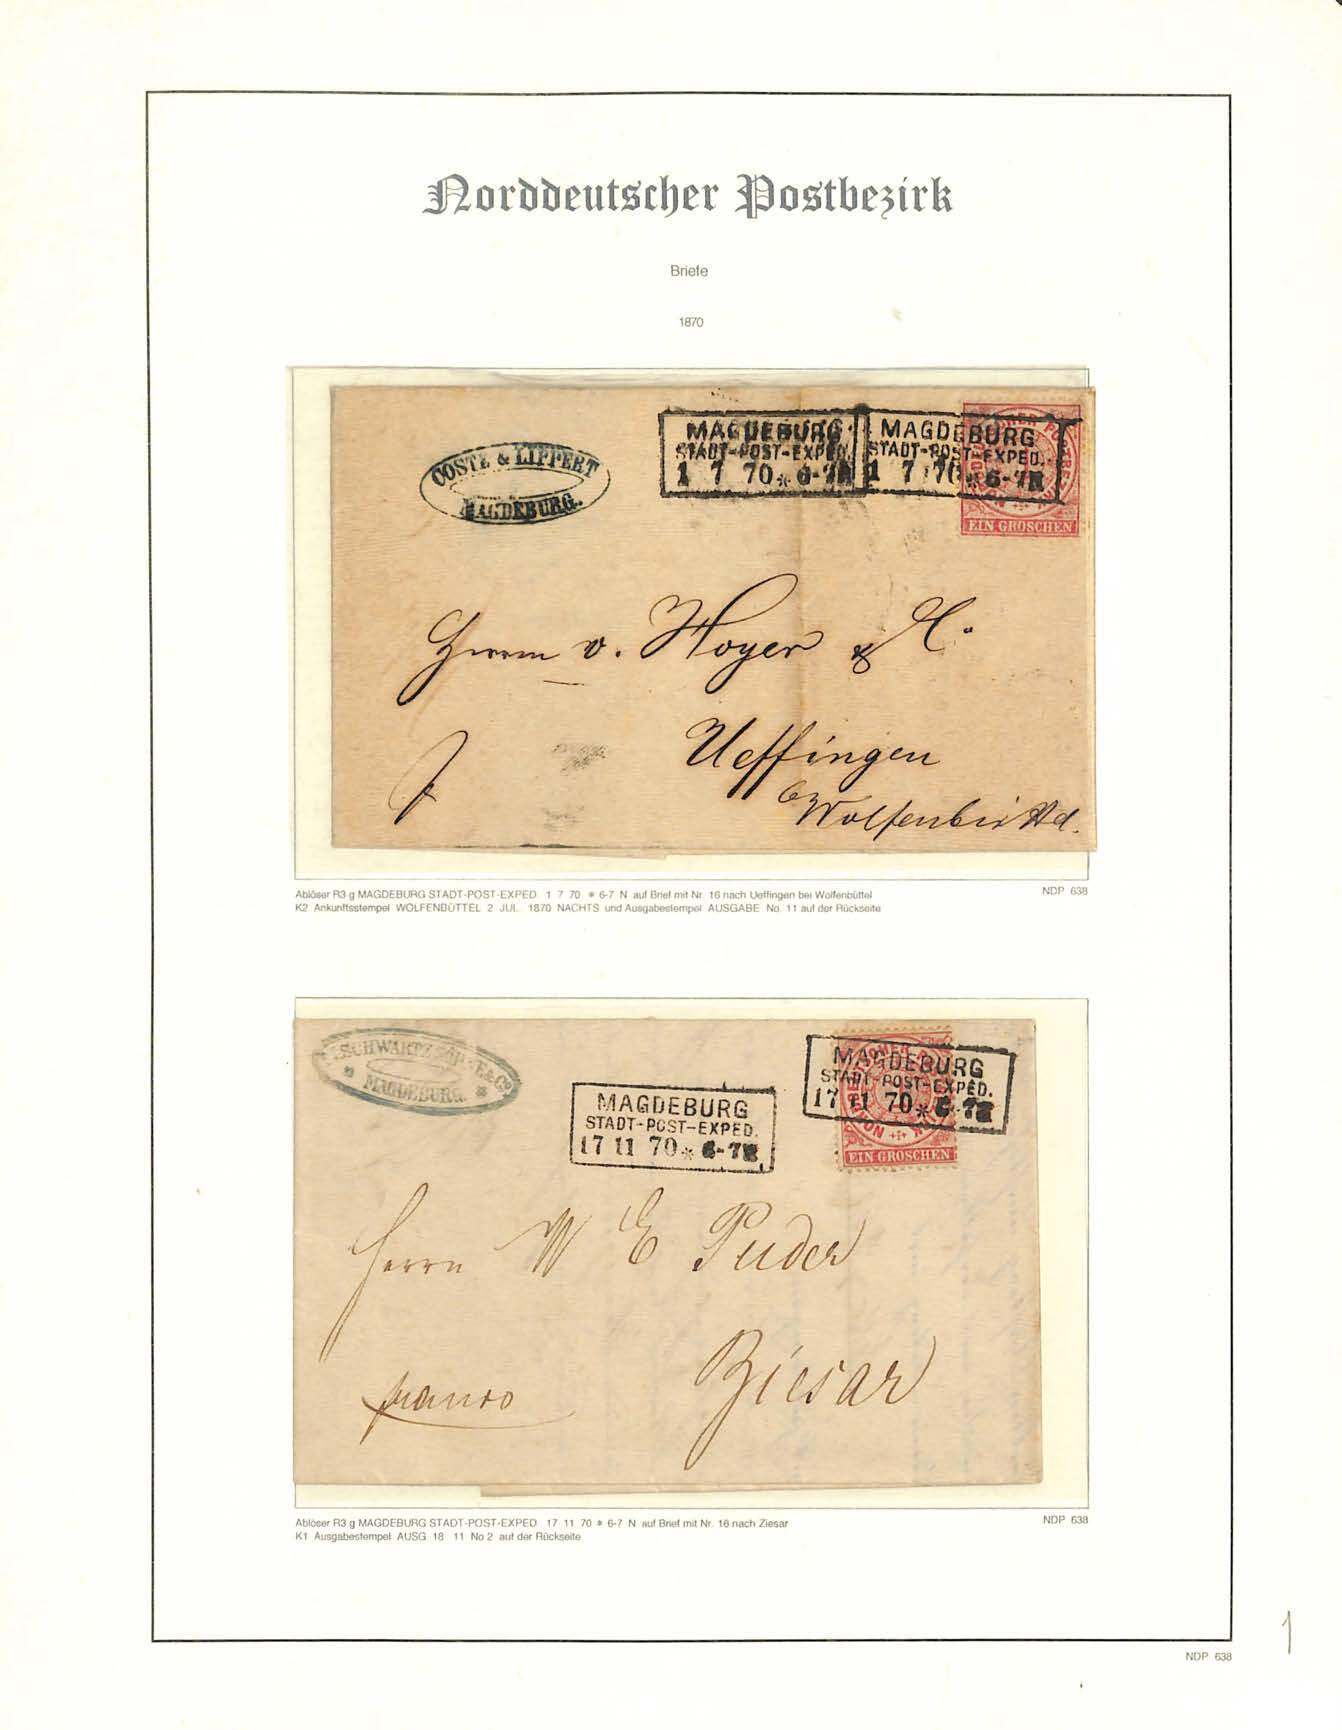 Norddeutscher Postbezirk
Briefe
1870
COSTE & LIPPERT
MAGDEBURG.
MAGDEBURG
STADT-POST-EXPED.
1 7 70 * 6-7N
MAGDEBURG
STADT-POST-EXPED.
1 7 70 * 6-7N
EIN GROSCHEN
Herrn v. Hoyer & C.
Ueffingen
b/ Wolfenbüttel.
Ablöser R3 g MAGDEBURG STADT-POST-EXPED. 1 7 70 * 6-7 N auf Brief mit Nr. 16 nach Ueffingen bei Wolfenbüttel
K2 Ankunftsstempel WOLFENBÜTTEL 2 JUL. 1870 NACHTS und Ausgabestempel AUSGABE No. 11 auf der Rückseite
NDP 638
SCHWARTZ
MAGDEBURG.
MAGDEBURG
STADT-POST-EXPED.
17 11 70 * 6-7N
MAGDEBURG
STADT-POST-EXPED.
17 11 70 * 6-7N
EIN GROSCHEN
Herrn W E Puder
Ziesar
franco
Ablöser R3 g MAGDEBURG STADT-POST-EXPED. 17 11 70 * 6-7 N auf Brief mit Nr. 16 nach Ziesar
K1 Ausgabestempel AUSG 18 11 No 2 auf der Rückseite
NDP 638
NDP 638
1